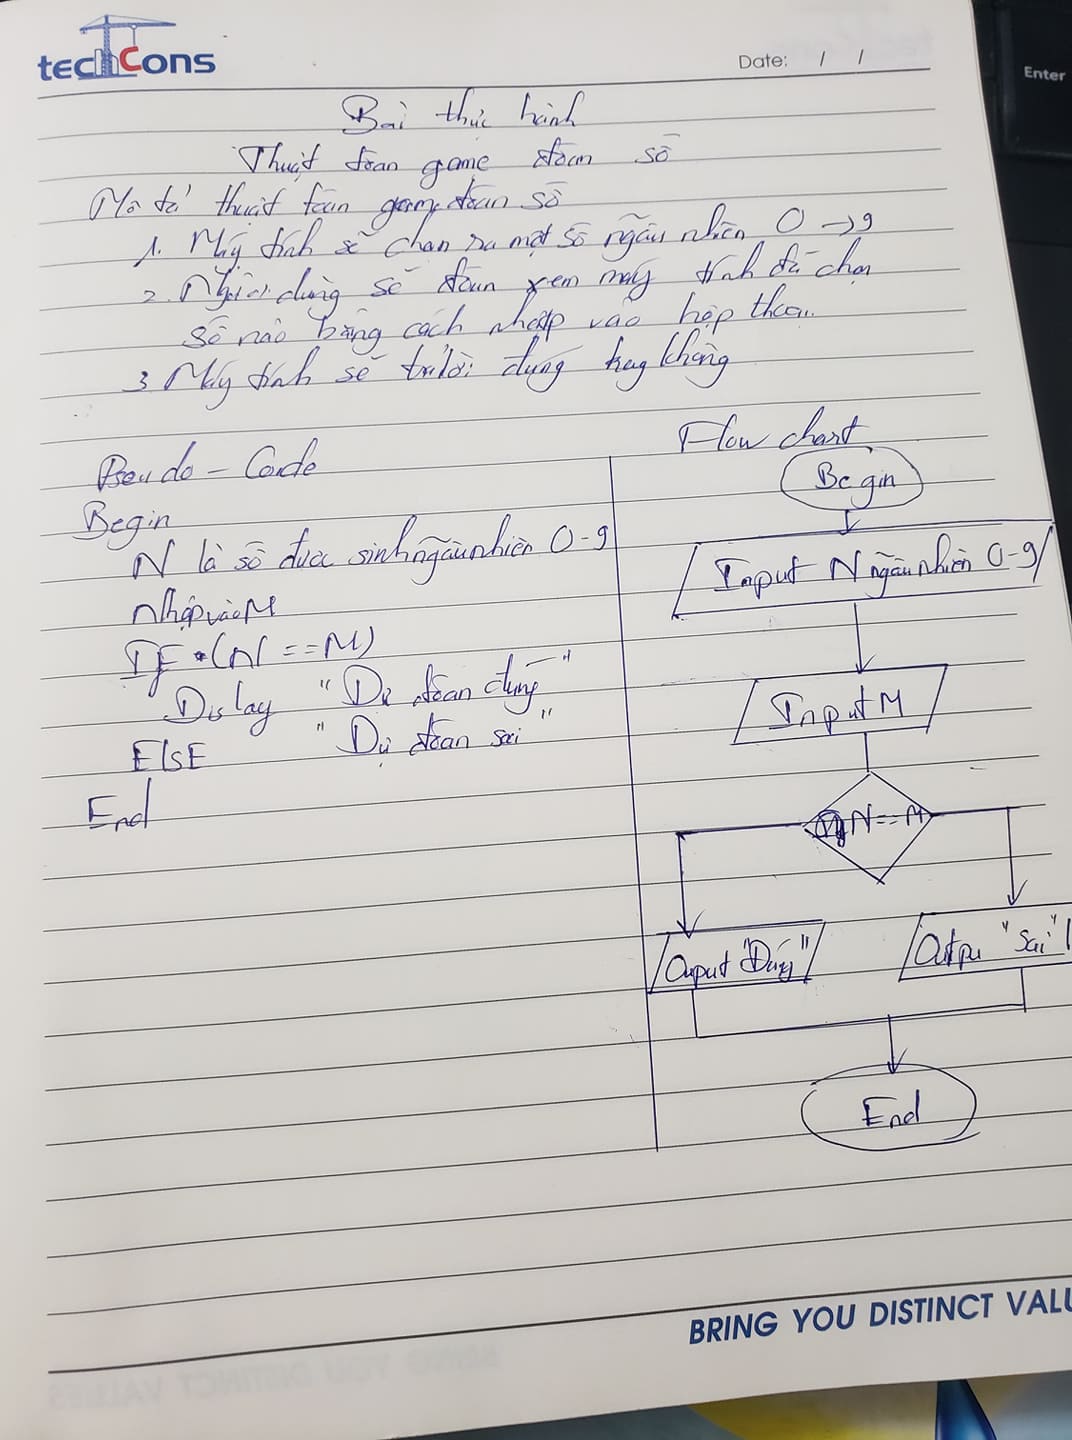 techCons
Date: / /
Enter
Bài thực hành
Thuật toán game đoán số
Mô tả thuật toán game đoán số
1. Máy tính sẽ chọn ra một số ngẫu nhiên 0 → 9
2. Người dùng sẽ đoán xem máy tính đã chọn
số nào bằng cách nhập vào hộp thoại.
3 Máy tính sẽ trả lời đúng hay không
Pseudo - Code
Begin
N là số được sinh ngẫu nhiên 0-9
Nhập vào M
IF (N == M)
Display "Dự đoán đúng"
ElSE "Dự đoán sai"
End
Flow chart
Begin
Input N ngẫu nhiên 0-9
Input M
N == M
Ouput "Đúng"
Outpu "Sai"
End
BRING YOU DISTINCT VALU